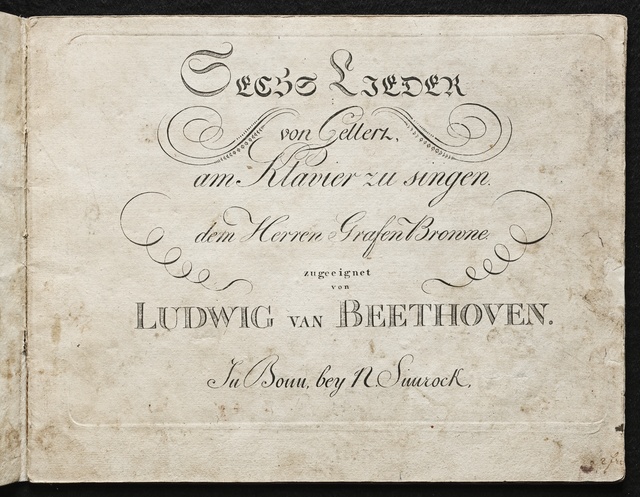 Sechs Lieder
von Gellert,
am Klavier zu singen.
dem Herren Grafen Browne.
zugeeignet
von
LUDWIG VAN BEETHOVEN.
In Bonn, bey N. Simrock,